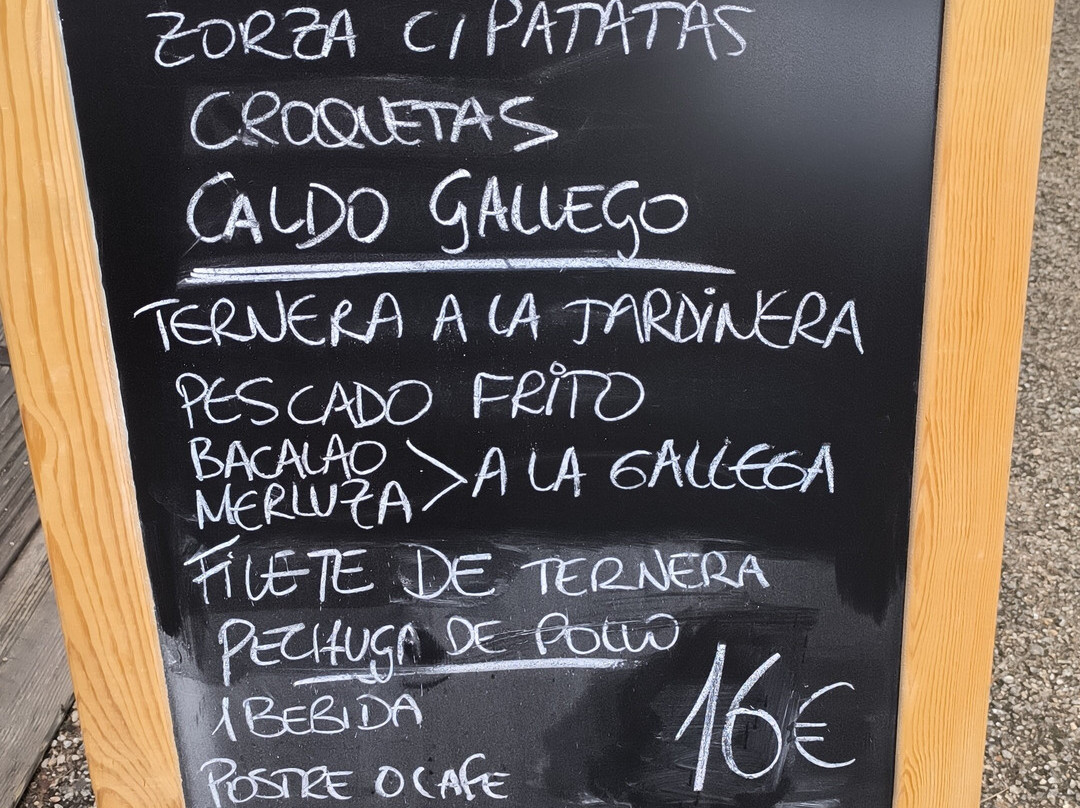 ZORZA C/PATATAS
CROQUETAS
CALDO GALLEGO
TERNERA A LA JARDINERA
PESCADO FRITO
BACALAO
MERLUZA > A LA GALLEGA
FILETE DE TERNERA
PECHUGA DE POLLO
1 BEBIDA
16€
POSTRE O CAFE